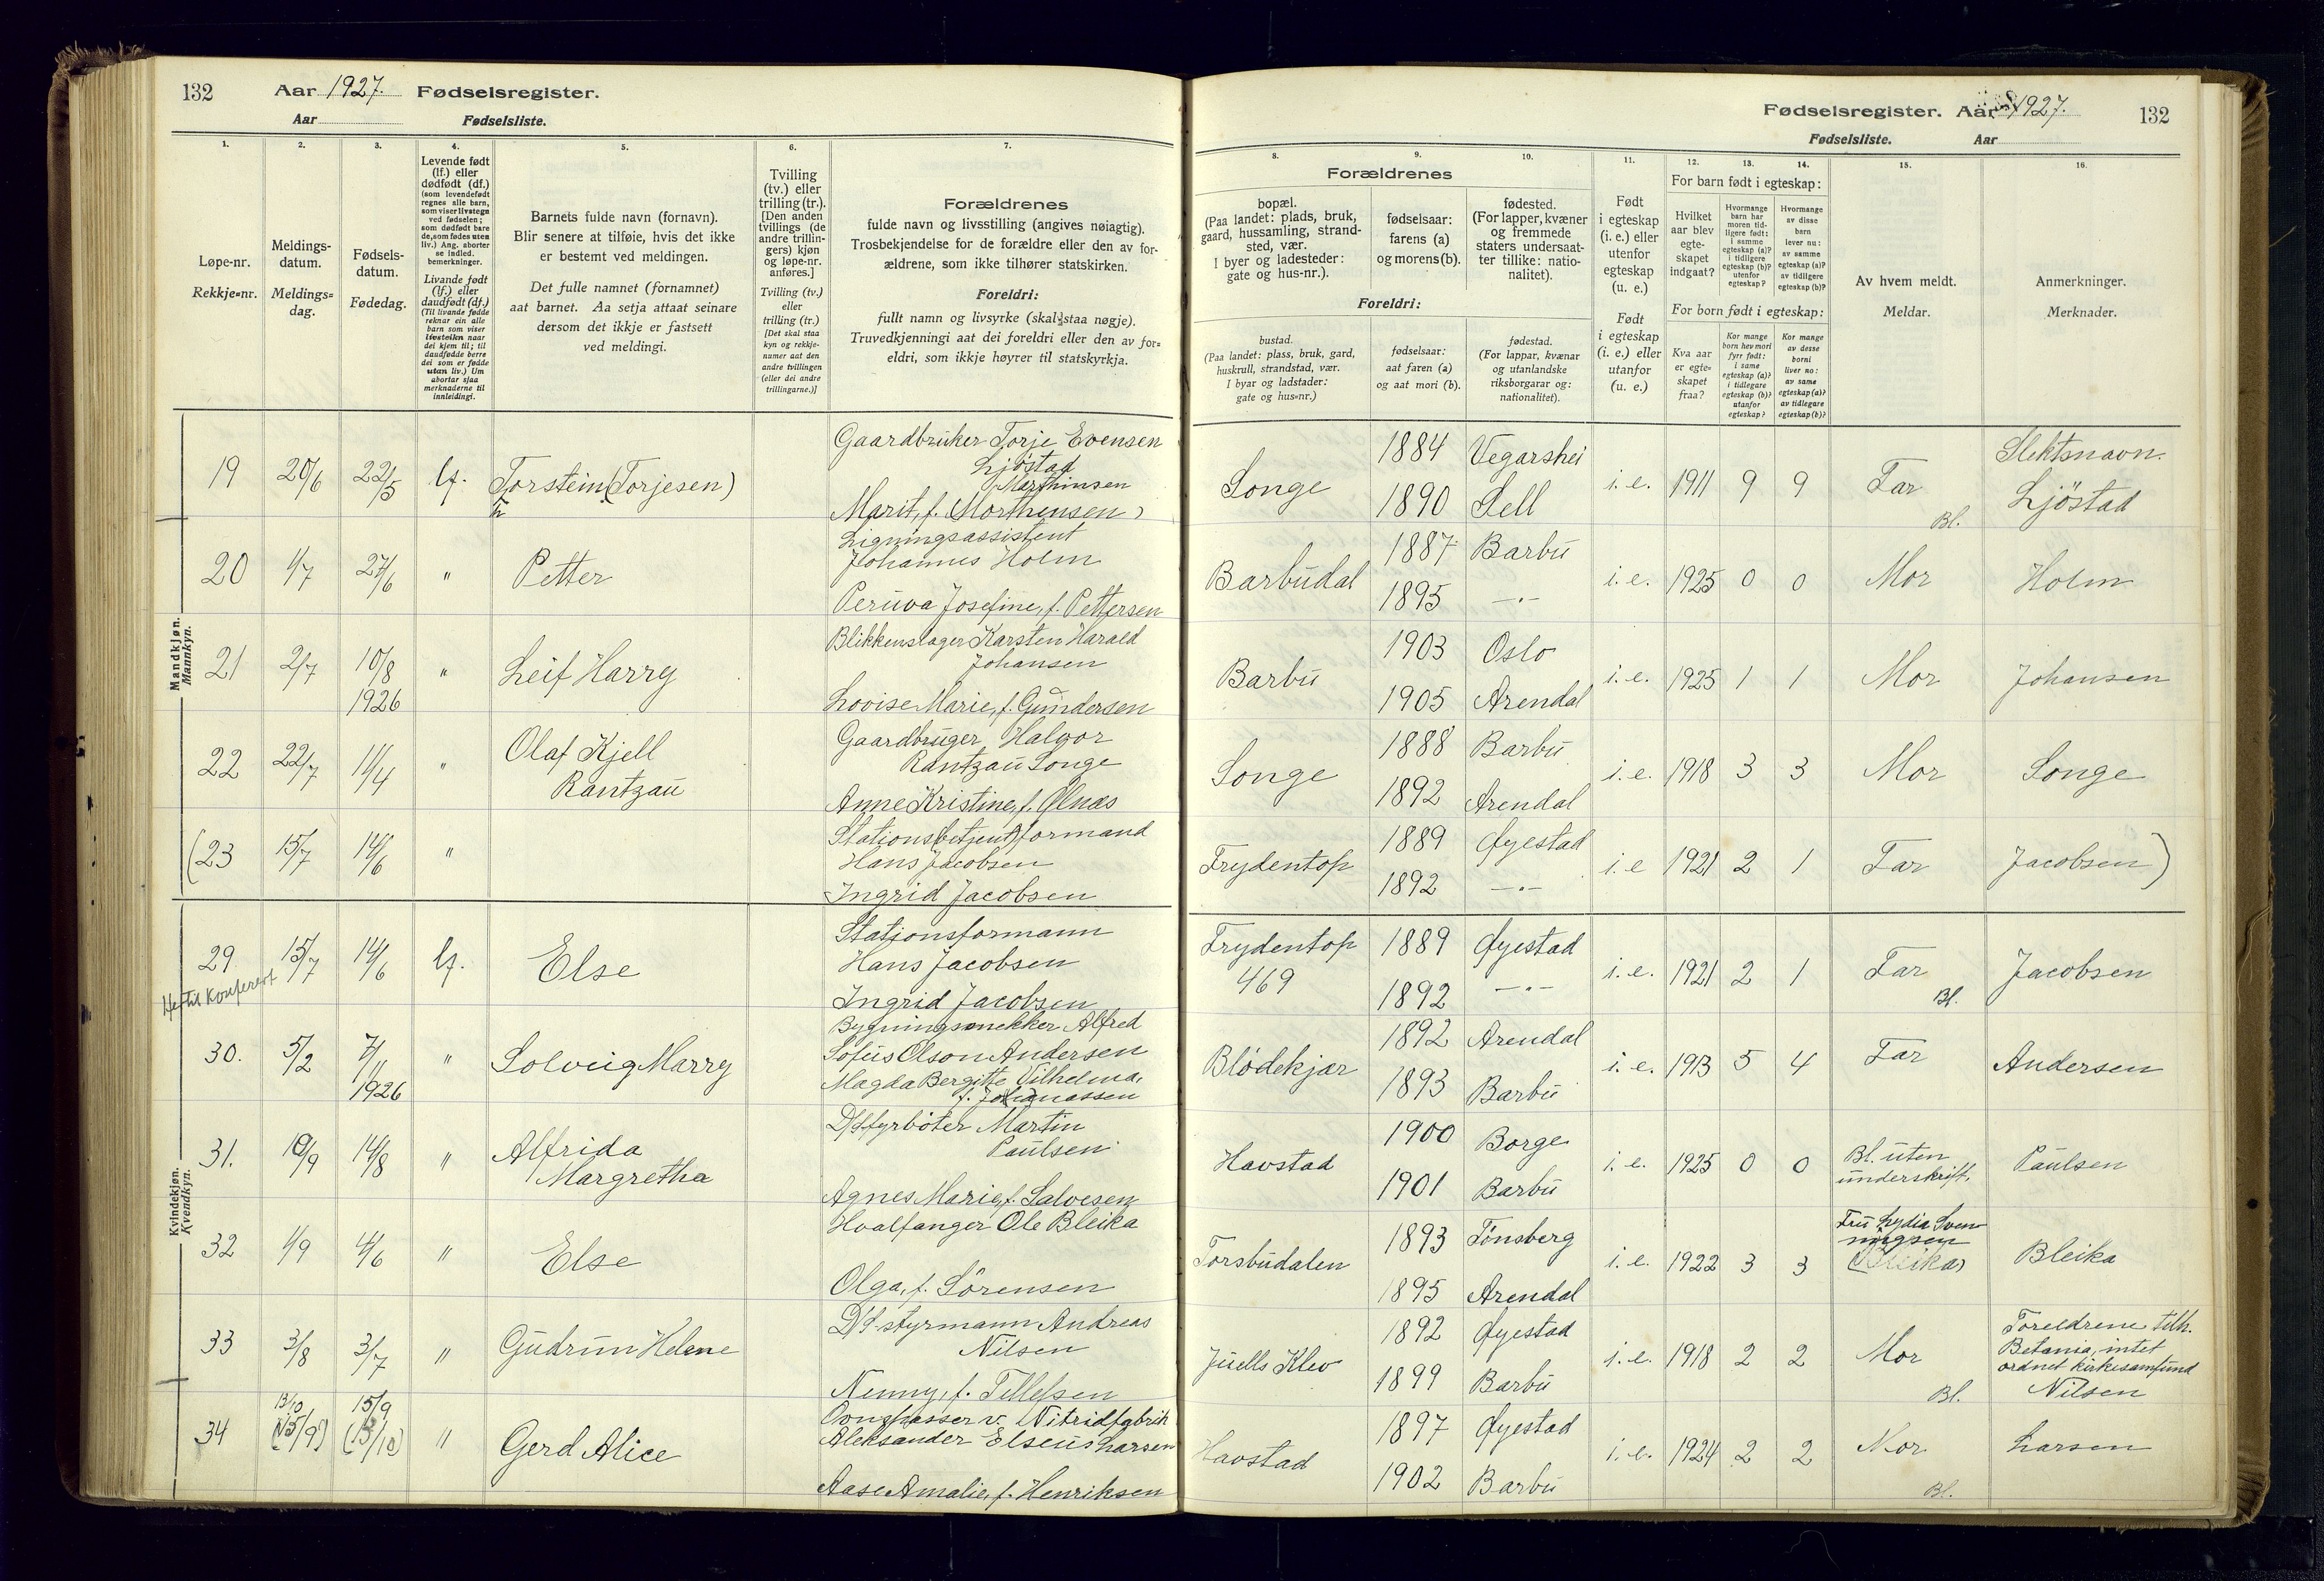 132 Aar 1927. Fødselsregister.
Aar Fødselsliste.
Fødselsregister. Aar 1927. 132
Fødselsliste. Aar
1. 2. 3. 4. 5. 6. 7.
Løpe-nr.
Rekkje=nr.
Meldings-
datum.
Meldings=
dag.
Fødsels-
datum.
Fødedag.
Levende født
(lf.) eller
dødfødt (df.)
(som levendefødt
regnes alle barn,
som viser livstegn
ved fødselen;
som dødfødt bare
de, som fødes uten
liv.) Ang. aborter
se indled.
bemerkninger.
Livande født
(lf.) eller
daudfødt (df.)
(Til livande fødde
reknar ein alle
barn som viser
livsteikn naar
dei kjem til; til
daudfødde berre
dei som er fødde
utan liv.) Um
abortar sjaa
merknaderne til
innleidingi.
Barnets fulde navn (fornavn).
Blir senere at tilføie, hvis det ikke
er bestemt ved meldingen.
Det fulle namnet (fornamnet)
aat barnet. Aa setja attaat seinare
dersom det ikkje er fastsett
ved meldingi.
Tvilling
(tv.) eller
trilling (tr.).
[Den anden
tvillings (de
andre trillin-
gers) kjøn
og løpe-nr.
anføres.]
Tvilling (tv.)
eller
trilling (tr.)
[Det skal staa
kyn og rekkje-
numer aat den
andre tvillingen
(eller dei andre
trillingarne.)]
Forældrenes
fulde navn og livsstilling (angives nøiagtig).
Trosbekjendelse for de forældre eller den av for-
ældrene, som ikke tilhører statskirken.
Foreldri:
fullt namn og livsyrke (skal staa nøgje).
Truvedkjenningi aat dei foreldri eller den av for=
eldri, som ikkje høyrer til statskyrkja.
8. 9. 10. 11. 12. 13. 14. 15. 16.
Forældrenes
bopæl.
(Paa landet: plads, bruk,
gaard, hussamling, strand-
sted, vær.
I byer og ladesteder:
gate og hus-nr.).
fødselsaar:
farens (a)
og morens (b).
fødested.
(For lapper, kvæner
og fremmede
staters undersaat-
ter tillike: natio-
nalitet).
Foreldri:
bustad.
(Paa landet: plass, bruk, gard,
huskrull, strandstad, vær.
I byar og ladstader:
gate og hus=nr.)
fødselsaar:
aat faren (a)
og aat mori (b).
fødestad.
(For lappar, kvænar
og utanlandske
riksborgarar og:
nationalitet).
Født
i egteskap
(i. e.) eller
utenfor
egteskap
(u. e.)
Født
i egteskap
(i. e.) eller
utanfor
(u. e.)
For barn født i egteskap:
Hvilket
aar blev
egte-
skapet
indgaat?
Hvormange
barn har
moren tid-
ligere født:
i samme
egteskap (a)?
i tidligere
egteskap (b)?
utenfor
egteskap?
Hvormange
av disse
barn
lever nu:
av samme
egteskap (a)?
av tidligere
egteskap (b)?
For born født i egteskap:
Kva aar
er egte=
skapet
fraa?
Kor mange
born hev mori
fyrr født:
i same
egteskap (a)?
i tidlegare
egteskap (b)?
utanfor
egteskap?
Kor mange
av desse
borni
liver no:
av same
egteskap (a)?
av tidlegare
egteskap (b)?
Av hvem meldt.
Meldar.
Anmerkninger.
Merknader.
Mandkjøn.
Mannkyn.
19 20/6 22/5 lf. Torstein (Torjesen)
Gaardbruker Torje Evensen
Ljöstad
Marthinsen
Marit, f. (Morthensen)
Songe 1884 Vegarshei
1890 Sell
i. e. 1911 9 9 Far Bl.
Slektsnavn.
Ljöstad
20 1/7 27/6 " Petter
Ligningsassistent
Johannes Holm
Peruva Josefine, f. Pettersen
Barbudal 1887 Barbu
1895 —"—
i. e. 1925 0 0 Mor Holm
21 2/7 10/8 1926 " Leif Harry
Blikkenslager Karsten Harald
Johansen
Lovise Marie, f. Gundersen
Barbu 1903 Oslo
1905 Arendal
i. e. 1925 1 1 Mor Johansen
22 22/7 11/4 " Olaf Kjell
Rantzau
Gaardbruger Halvor
Rantzau Songe
Anne Kristine, f. Ølnæs
Songe 1888 Barbu
1892 Arendal
i. e. 1918 3 3 Mor Songe
(23 15/7 14/6 "
Stations(betjent)formand
Hans Jacobsen
Ingrid Jacobsen
Frydentop 1889 Øyestad
1892 —"—
i. e 1921 2 1 Far Jacobsen)
Kvindekjøn.
Kvendkyn.
29 15/7 14/6 lf. Else
Hertil Konferert
Stationsformann
Hans Jacobsen
Ingrid Jacobsen
Frydentop 1889 Øyestad
469 1892 —"—
i. e. 1921 2 1 Far Bl. Jacobsen
30. 5/2 7/11 1926 " Solveig Marry
Bygningssnekker Alfred
Sofus Olson Andersen
Magda Bergitte Vilhelma,
Blödekjær 1892 Arendal
1893 Barbu
i. e. 1913 5 4 Far Andersen
31. 10/9 14/8 " Alfrida
Margretha
D/S fyrböter Martin
Paulsen
Agnes Marie, f. Salvesen
Havstad 1900 Borge
1901 Barbu
i. e. 1925 0 0 Bl. uten
underskrift.
Paulsen
32 1/9 4/6 " Else
Hvalfanger Ole Bleika
Olga, f. Sörensen
Torsbudalen 1893 Tönsberg
1895 Arendal
i. e. 1922 3 3 Fru Lydia Sven
ningsen
(Bleika)
Bleika
33 3/8 3/7 " Gudrun Helene
D/S styrmann Andreas
Nilsen
Nenny, f. Tellefsen
Juells Klev 1892 Øyestad
1899 Barbu
i. e. 1918 2 2 Mor Bl.
Foreldrene tilh.
Betania, intet
ordnet kirkesamfund
Nilsen
34 13/10 (15/9) 15/9 (13/10) " Gerd Alice
Ovnspasser v. Nitridfabrik
Aleksander Elseus Larsen
Aase Amalie, f. Henriksen
Havstad 1897 Øyestad
1902 Barbu
i. e. 1924 2 2 Mor Bl. Larsen